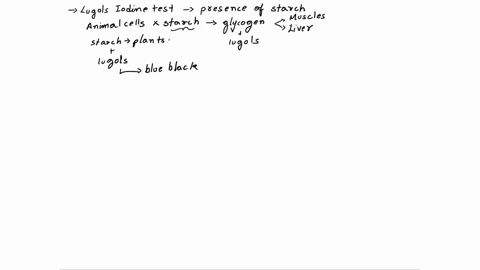 → Lugols Iodine test → presence of starch
Animal cells × starch → glycogen < Muscles
Liver
starch → plants.
+
lugols
+
lugols
↳ blue black